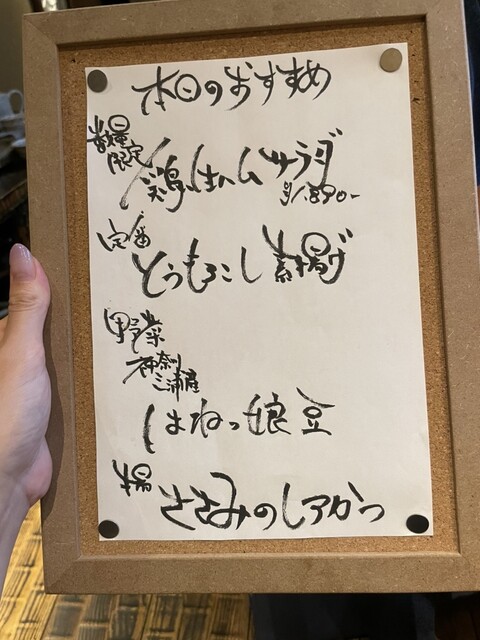 本日のおすすめ
数量
限定
鶏ハムサラダ
¥1,890-
定番
とうもろこし素揚げ
野菜
神奈川
三浦産
はねっ娘豆
揚
ささみのレアかつ